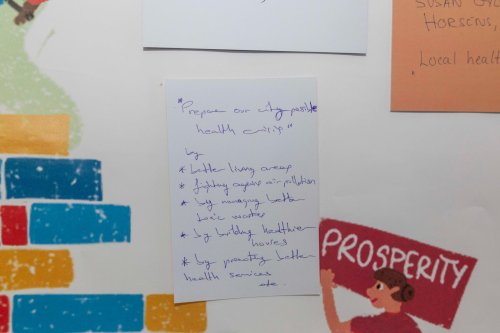 SUSAN
HORSENS,
Local healt
"Prepare our city possible
health crisis"
by
* better living areas
* fighting agains air pollution
* by managing better
toxic wastes
* by building healthier
houses
* by promoting better
health services
etc.
PROSPERITY